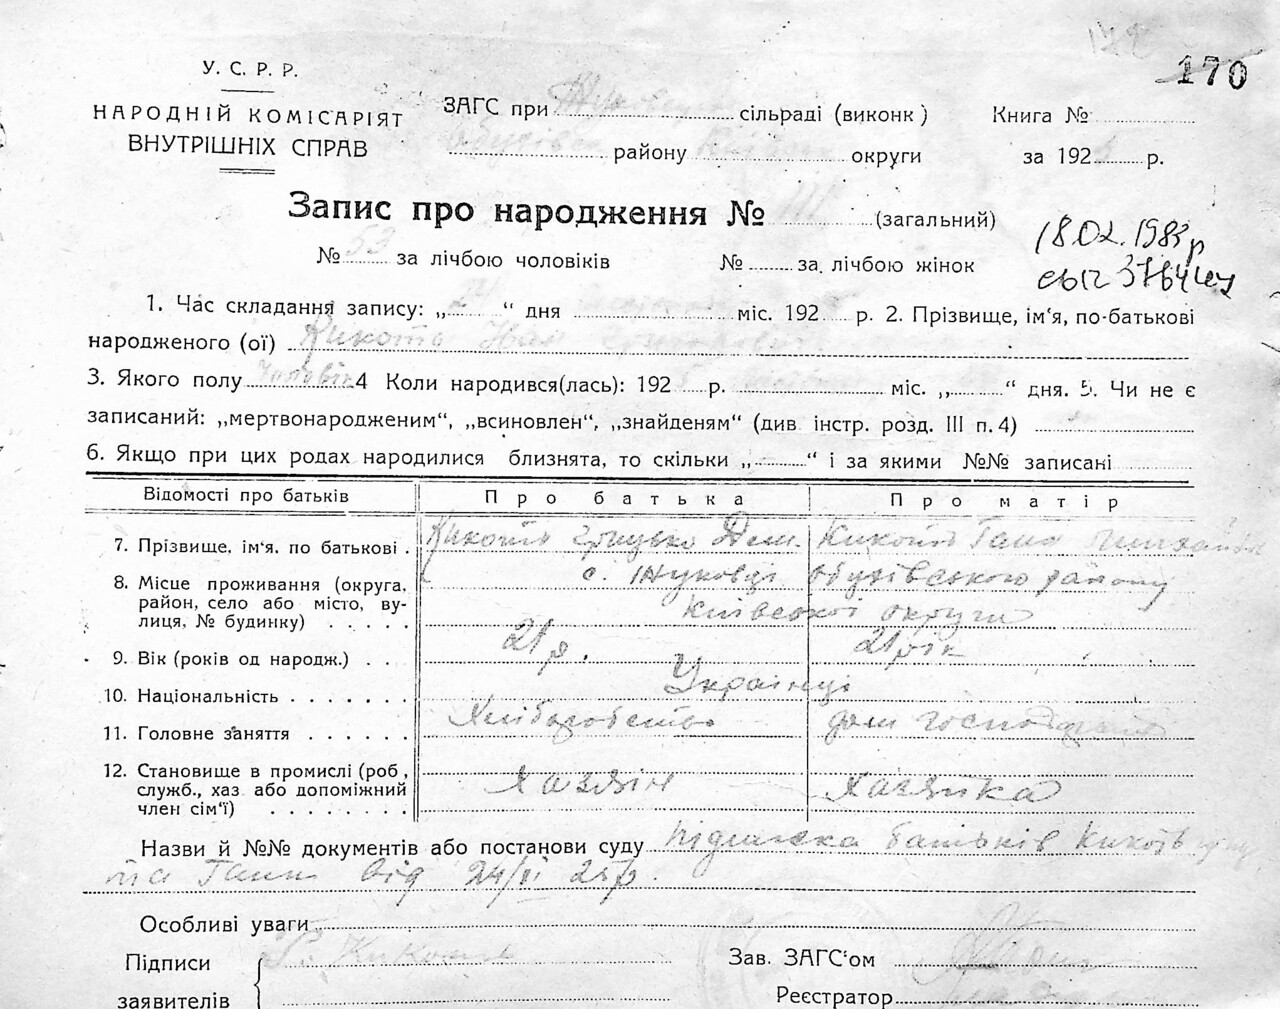 170
У. С. Р. Р.
НАРОДНІЙ КОМІСАРІЯТ
ВНУТРІШНІХ СПРАВ
ЗАГС при сільраді (виконк)
району округи
Книга №
за 1925 р.
Запис про народження № III (загальний)
№ 53 за лічбою чоловіків № за лічбою жінок
18.02.1983р
1. Час складання запису: „24“ дня міс. 192 р. 2. Прізвище, ім‘я, по-батькові
народженого (ої) Кикоть Іван Григорович
3. Якого полу Чоловік 4 Коли народився(лась): 1925 р. міс. „ “ дня. 5. Чи не є
записаний: „мертвонародженим“, „всиновлен“, „знайденям“ (див інстр. розд. III п.4)
6. Якщо при цих родах народилися близнята, то скільки „ “ і за якими №№ записані
Відомості про батьків Про батька Про матір
7. Прізвище, ім‘я, по батькові . Кикоть Грицько Дем. Кикоть Ганна Михайл
8. Місце проживання (округа, район, село або місто, вулиця, № будинку) . . . . . с. Жуковці Обухівського району
Київської округи
9. Вік (років од народж.) . . 21 р. 21 рік
10. Національність . . . . . . . Українці
11. Головне заняття . . . . . . Хліборобство дом господарство
12. Становище в промислі (роб., служб., хаз або допоміжний член сім‘ї) . . . . . . . . Хазяїн Хазяйка
Назви й №№ документів або постанови суду підписка батьків Кикоть
та Ганни від 24/VI 25р.
Особливі уваги
Підписи
заявителів
Г. Кикоть
Зав. ЗАГС‘ом
Реєстратор